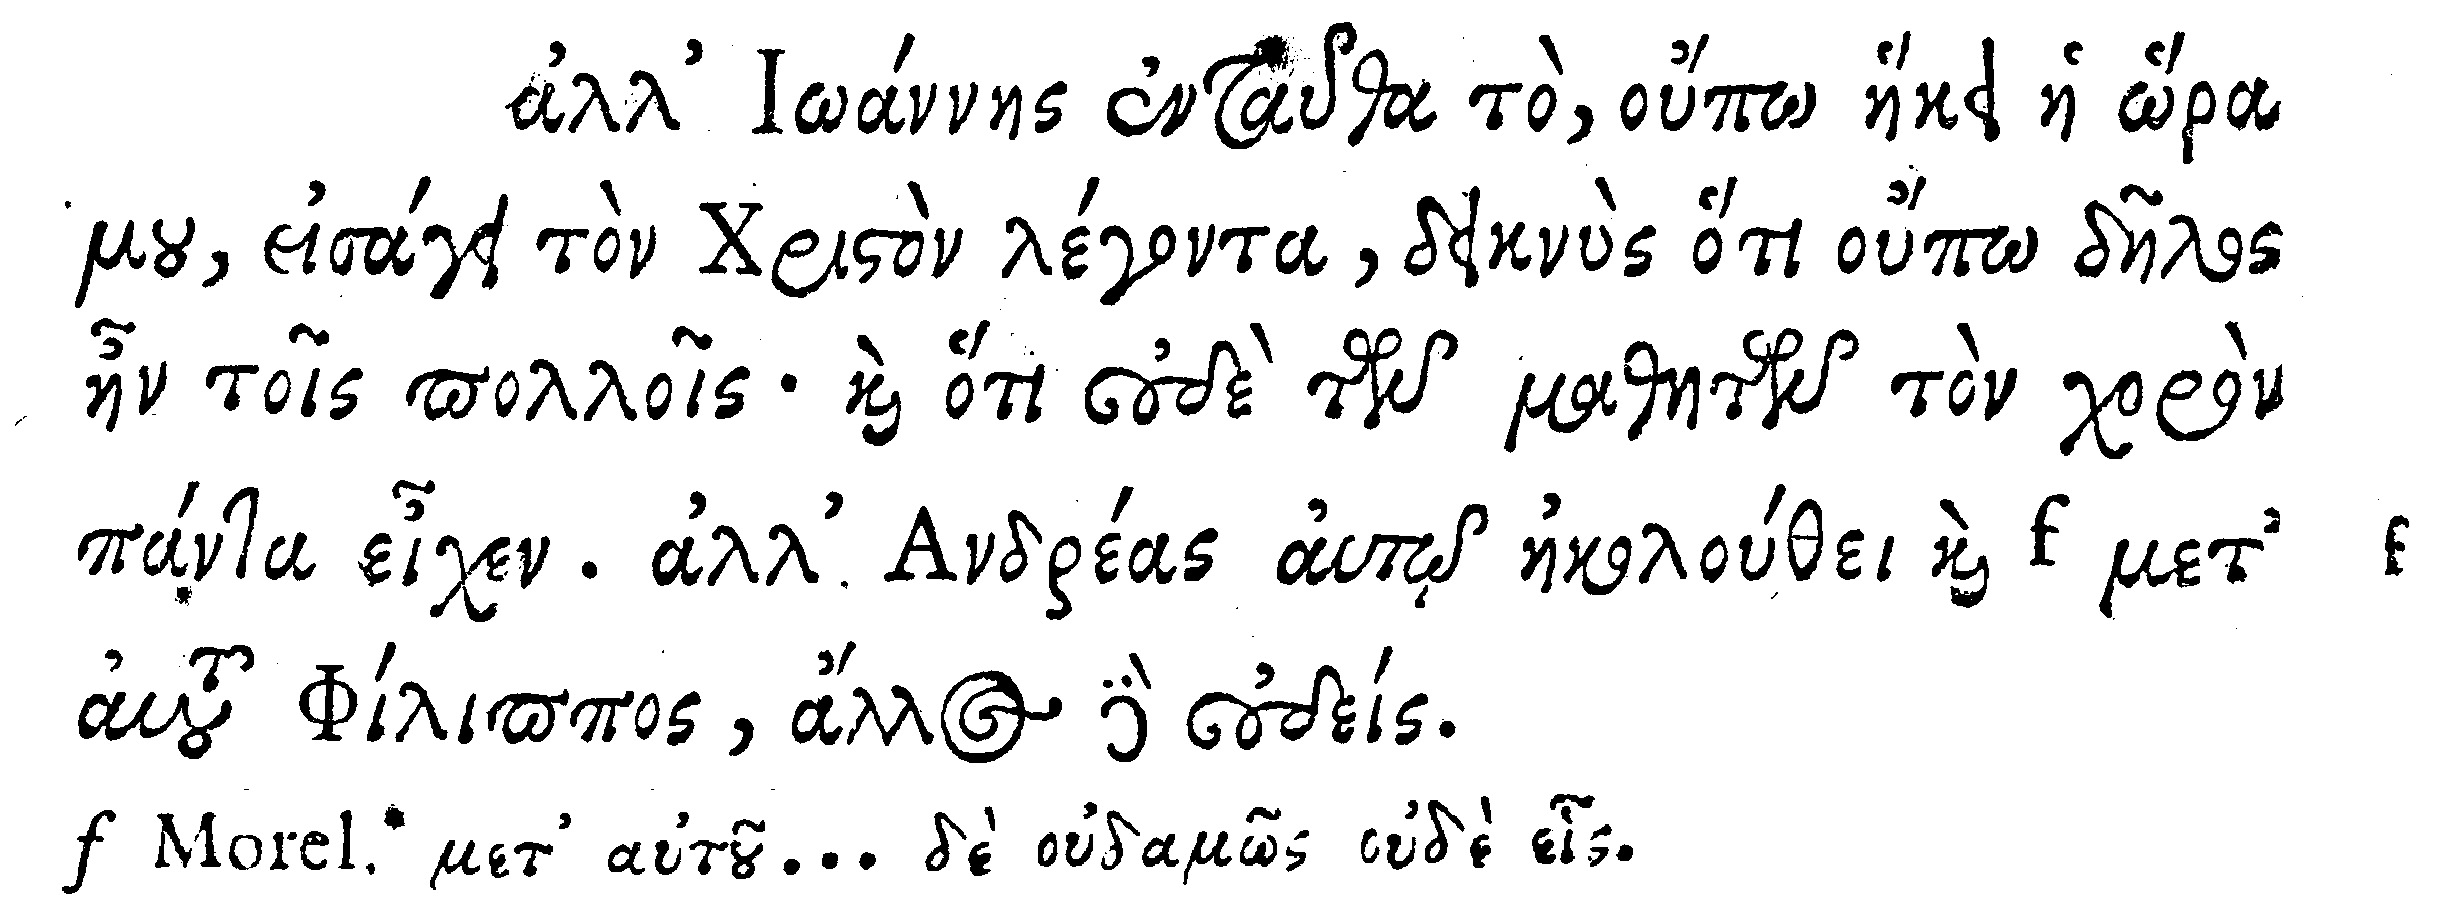 ἀλλ᾽ Ιωάννης ἐνταῦθα τὸ, οὔπω ἥκει ἡ ὥρα
μου, εἰσάγει τὸν Χριστὸν λέγοντα, δεικνὺς ὅτι οὔπω δῆλος
ἦν τοῖς πολλοῖς· καὶ ὅτι οὐδὲ τῶν μαθητῶν τὸν χορὸν
πάντα εἶχεν. ἀλλ᾽ Ανδρέας αὐτῷ ἠκολούθει καὶ f μετ᾽ f
αὐτοῦ Φίλιππος, ἄλλος δὲ οὐδείς.
f Morel. μετ᾽ αὐτοῦ... δὲ οὐδαμῶς οὐδὲ εἷς.